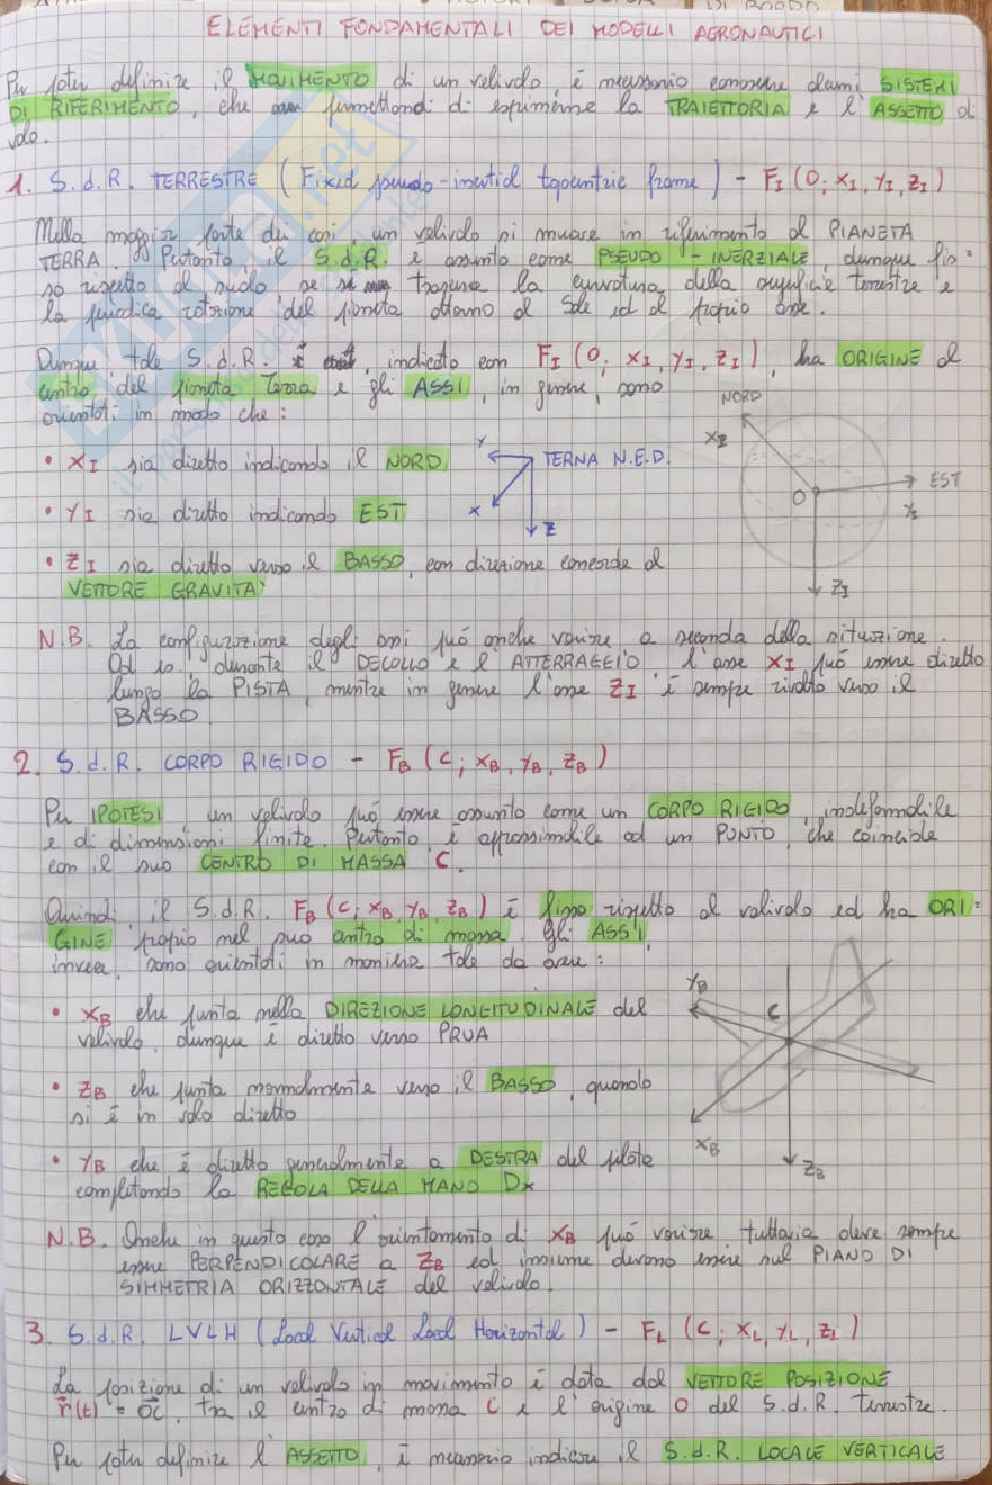 ELEMENTI FONDAMENTALI DEI MODELLI AERONAUTICI
Per poter definire il MOVIMENTO di un velivolo, è necessario conoscere alcuni SISTEMI
DI RIFERIMENTO, che permettono di esprimerne la TRAIETTORIA e l'ASSETTO di
volo.
1. S.d.R. TERRESTRE (Fixed pseudo-inertial topocentric frame) - FI (O; XI, YI, ZI)
Nella maggior parte dei casi, un velivolo si muove in riferimento al PIANETA
TERRA. Pertanto il S.d.R. è assunto come PSEUDO-INERZIALE, dunque fis=
so rispetto al suolo se si trascura la curvatura della superficie terrestre e
la periodica rotazione del pianeta attorno al Sole ed al proprio asse.
Dunque, tale S.d.R., indicato con FI (O; XI, YI, ZI), ha ORIGINE al
centro del pianeta Terra e gli ASSI, in genere, sono
orientati in modo che:
• XI sia diretto indicando il NORD
• YI sia diretto indicando EST
• ZI sia diretto verso il BASSO, con direzione concorde al
VETTORE GRAVITA'
Y
X
Z
TERNA N.E.D.
NORD
O
EST
YI
ZI
N.B. La configurazione degli assi può anche variare a seconda della situazione.
Ad es., durante il DECOLLO e l'ATTERRAGGIO l'asse XI può essere diretto
lungo la PISTA, mentre in genere l'asse ZI è sempre rivolto verso il
BASSO.
2. S.d.R. CORPO RIGIDO - FB (C; XB, YB, ZB)
Per IPOTESI, un velivolo può essere assunto come un CORPO RIGIDO, indeformabile
e di dimensioni finite. Pertanto, è approssimabile ad un PUNTO, che coincide
con il suo CENTRO DI MASSA C.
Quindi, il S.d.R. FB (C; XB, YB, ZB) è fisso rispetto al velivolo ed ha ORI=
GINE proprio nel suo centro di massa. Gli ASSI,
invece, sono orientati in maniera tale da avere:
• XB che punta nella DIREZIONE LONGITUDINALE del
velivolo, dunque è diretto verso PRUA
• ZB che punta normalmente verso il BASSO, quando
si è in volo diretto
• YB che è diretto generalmente a DESTRA del pilota
completando la REGOLA DELLA MANO Dx
YB
C
XB
ZB
N.B. Anche in questo caso l'orientamento di XB può variare, tuttavia deve sempre
essere PERPENDICOLARE a ZB ed insieme devono essere sul PIANO DI
SIMMETRIA ORIZZONTALE del velivolo.
3. S.d.R. LVLH (Local Vertical Local Horizontal) - FL (C; XL, YL, ZL)
La posizione di un velivolo in movimento è data dal VETTORE POSIZIONE
r(t) = OC, tra il centro di massa C e l'origine O del S.d.R. Terrestre.
Per poter definire l'ASSETTO, è necessario indicare il S.d.R. LOCALE VERTICALE